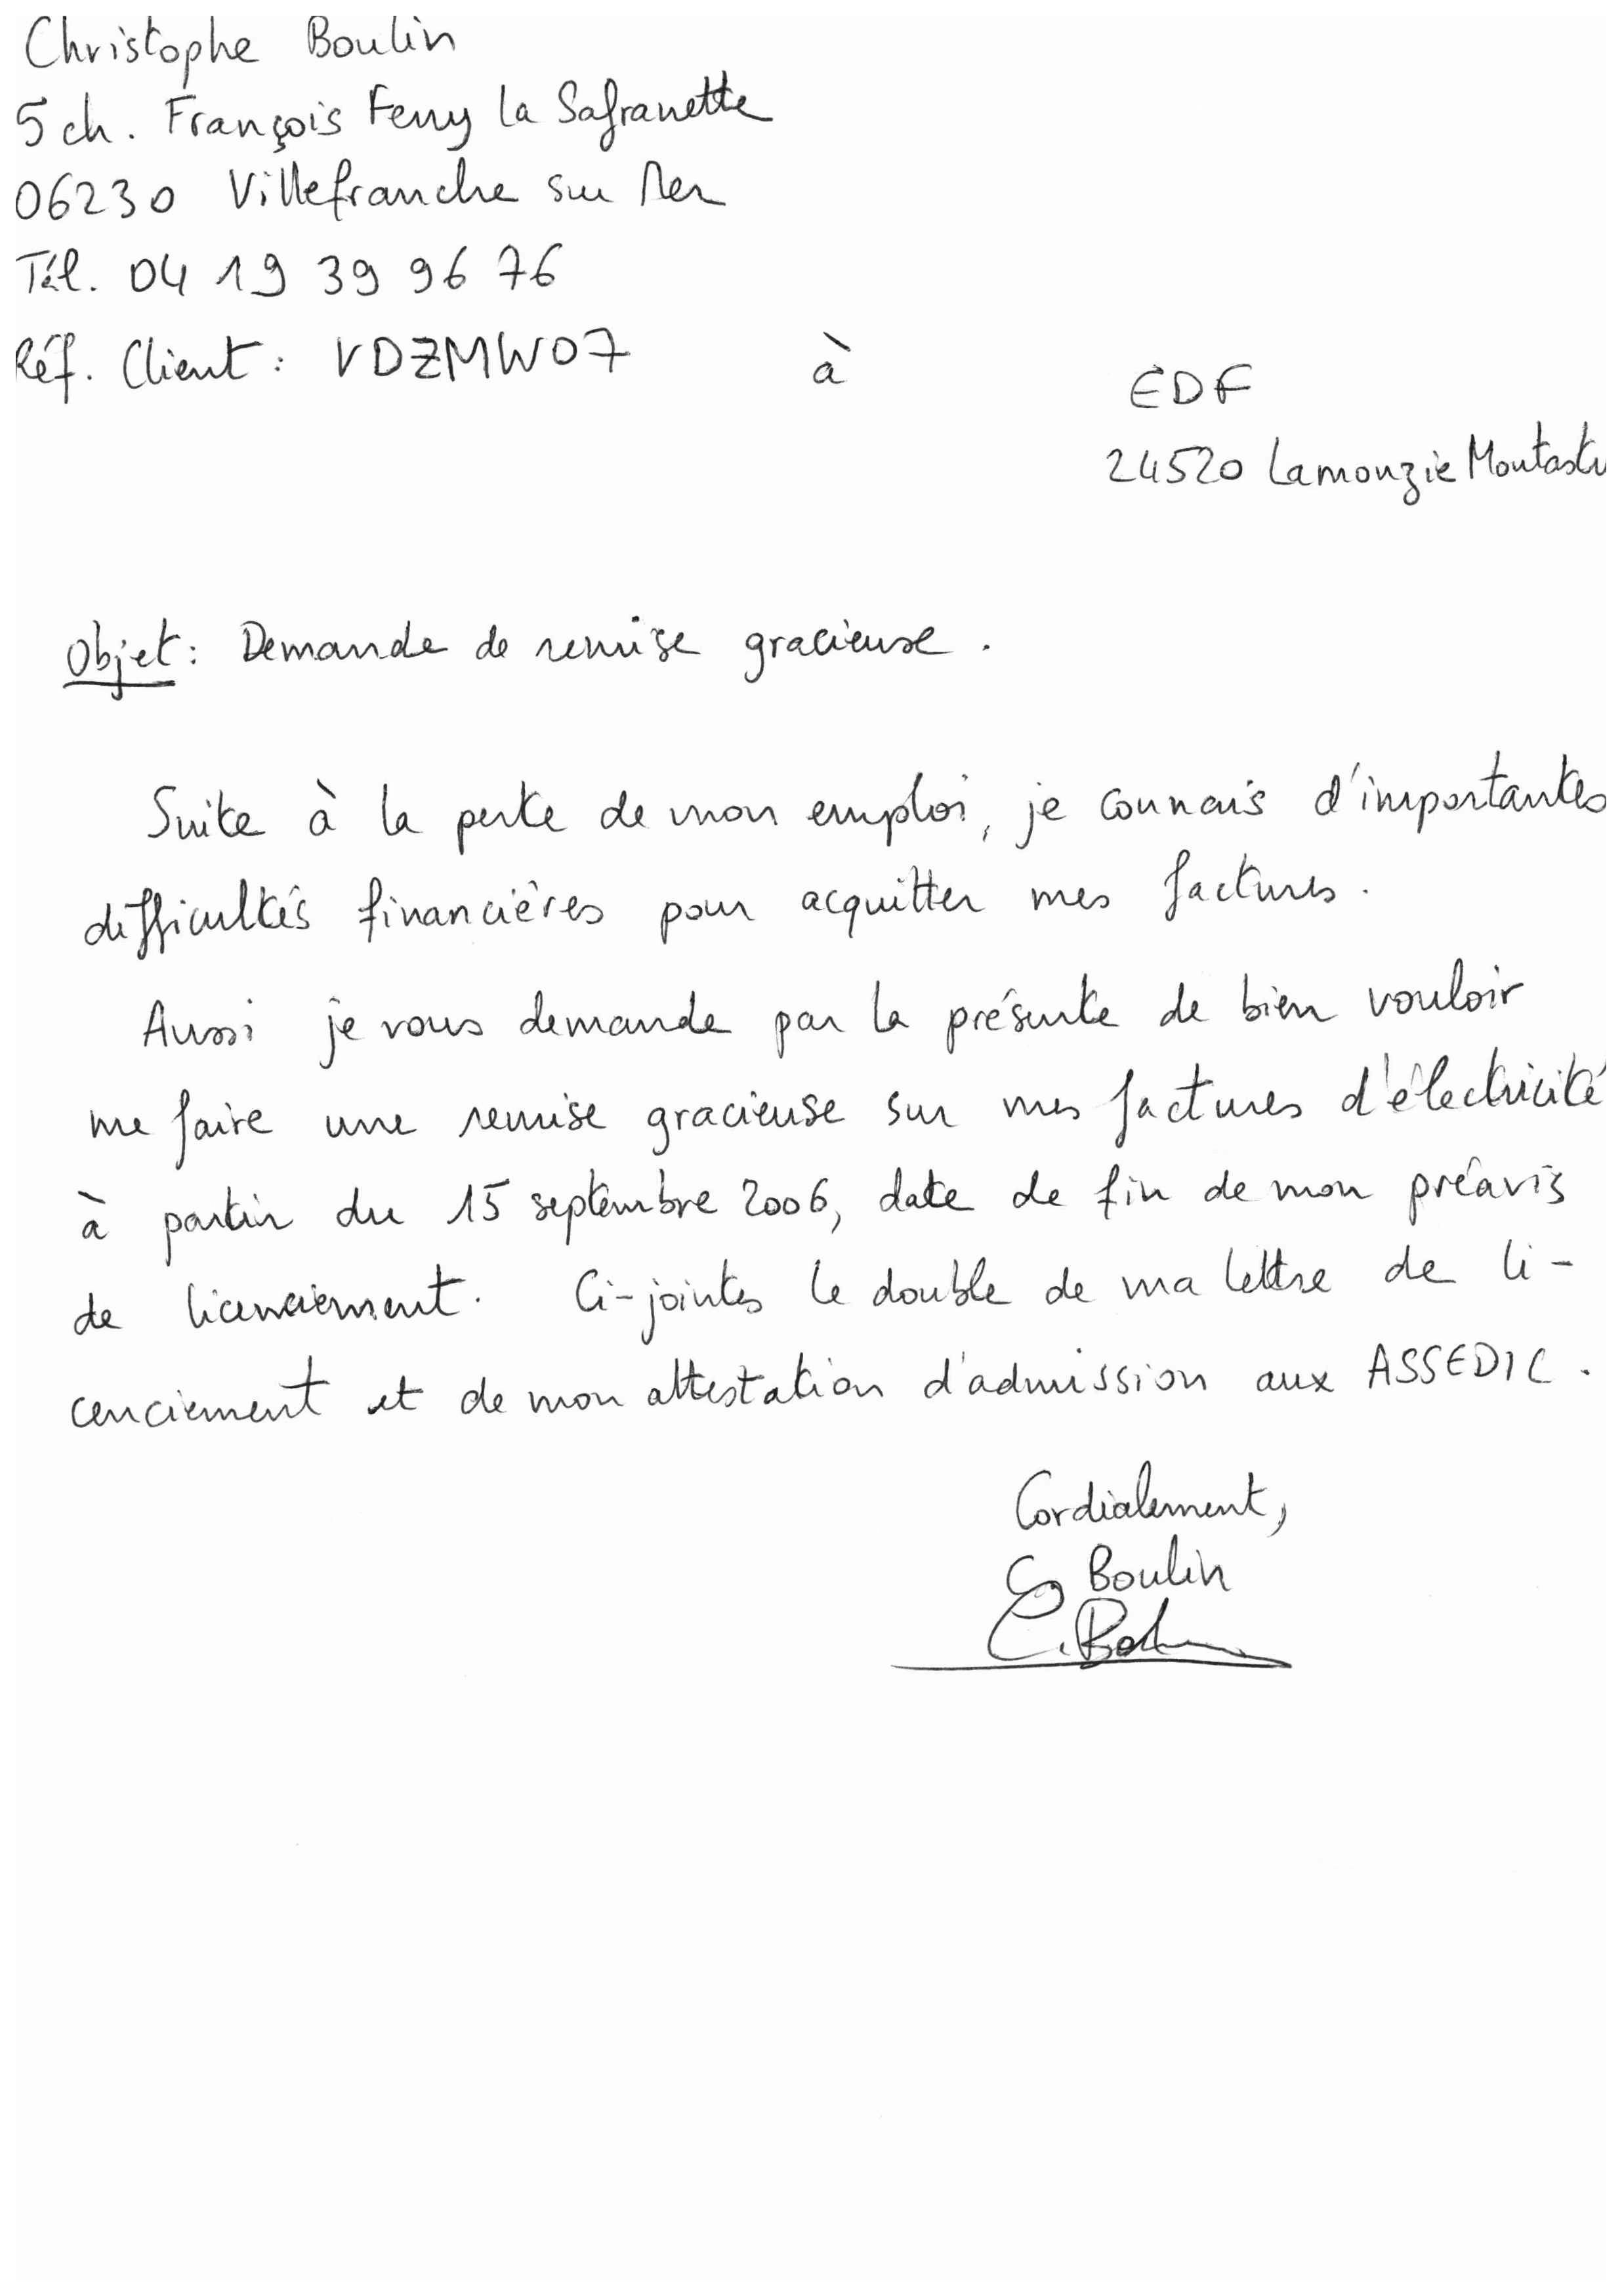 Christophe Boulin
5 ch. François Ferry la Safranette
06230 Villefranche sur Mer
Tél. 04 19 39 96 76
Réf. Client : VDZMW07
à
EDF
24520 Lamonzie Montastr
Objet : Demande de remise gracieuse.
Suite à la perte de mon emploi, je connais d'importantes
difficultés financières pour acquitter mes factures.
Aussi je vous demande par la présente de bien vouloir
me faire une remise gracieuse sur mes factures d'électricité
à partir du 15 septembre 2006, date de fin de mon préavis
de licenciement. Ci-jointes le double de ma lettre de li-
cenciement et de mon attestation d'admission aux ASSEDIC.
Cordialement,
C Boulin